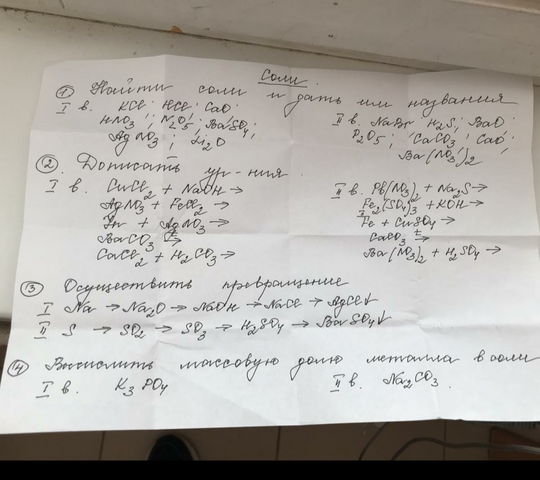 Соли.
① Найти соли и дать им названия
I в. KCl; HCl; CaO;
HNO3; N2O5; BaSO4;
AgNO3; Li2O
II в. NaBr; H2S; BaO;
P2O5; CaCO3; CaO;
Ba(NO3)2
② Дописать ур-ния
I в. CuCl2 + NaOH →
AgNO3 + FeCl2 →
Zn + AgNO3 →
BaCO3 t→
CaCl2 + H2CO3 →
II в. Pb(NO3)2 + Na2S →
Fe2(SO4)3 + KOH →
Fe + CuSO4 →
CaCO3 t→
Ba(NO3)2 + H2SO4 →
③ Осуществить превращение
I Na → Na2O → NaOH → NaCl → AgCl↓
II S → SO2 → SO3 → H2SO4 → BaSO4↓
④ Вычислить массовую долю металла в соли
I в. K3PO4
II в. Na2CO3.